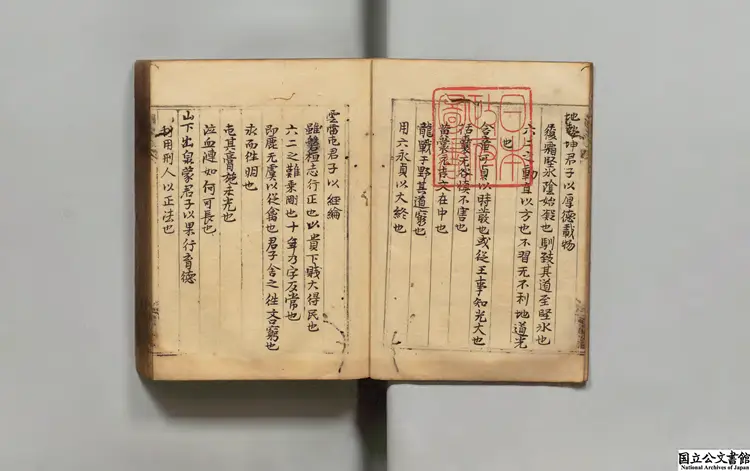 地勢坤君子以厚德載物
履霜堅氷陰始凝也馴致其道至堅氷也
六二之動直以方也不習无不利地道光
也
含章可貞以時發也或從王事知光大也
括囊无咎慎不害也
黃裳元吉文在中也
龍戰于野其道窮也
用六永貞以大終也
雲雷屯君子以經綸
雖磐桓志行正也以貴下賤大得民也
六二之難乘剛也十年乃字反常也
即鹿无虞以從禽也君子舍之往吝窮也
求而往明也
屯其膏施未光也
泣血漣如何可長也
山下出泉蒙君子以果行育德
利用刑人以正法也
日本
政府
圖書
国立公文書館
National Archives of Japan